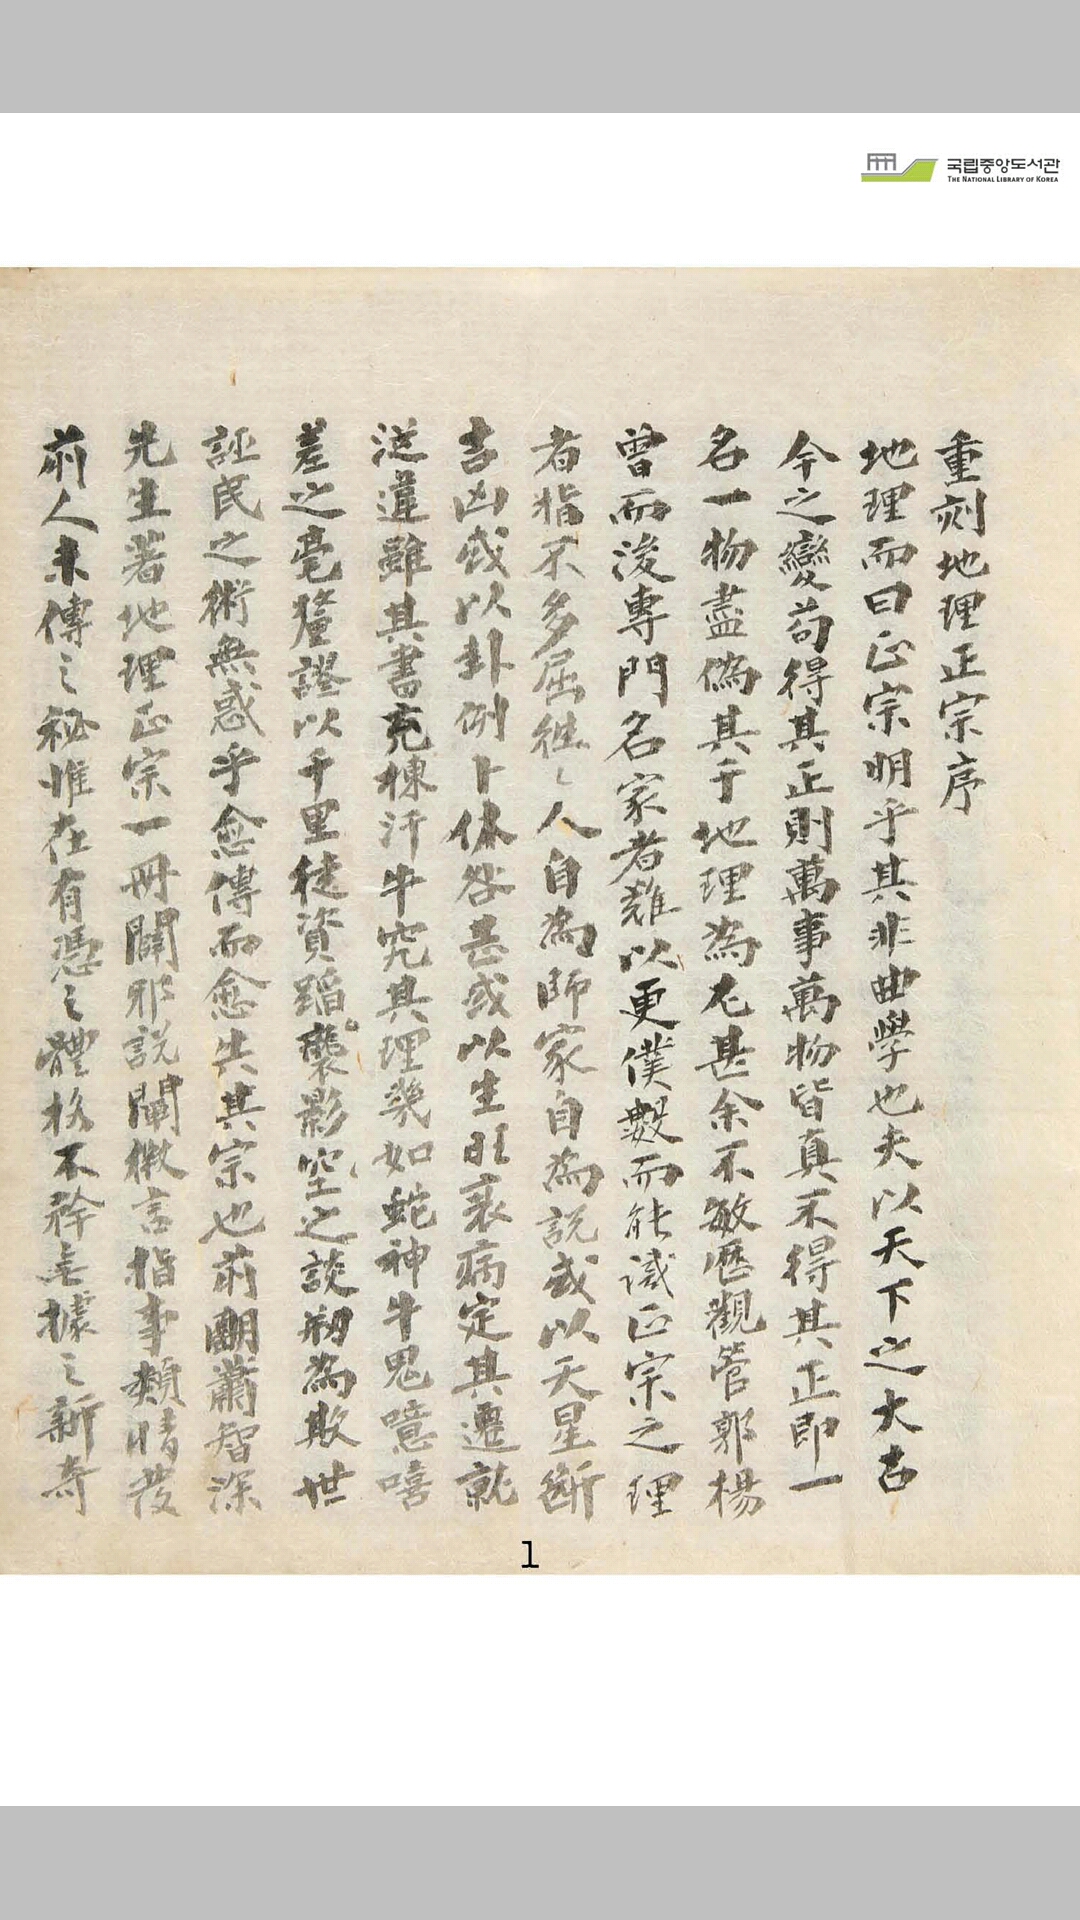 국립중앙도서관
THE NATIONAL LIBRARY OF KOREA
重刻地理正宗序
地理而曰正宗明乎其非曲學也夫以天下之大古
今之變苟得其正則萬事萬物皆真不得其正即一
名一物盡僞其于地理為尤甚余不敏歷觀管郭楊
曾而後專門名家者難以更僕數而能識正宗之理
者指不多屈徃〻人自為師家自為説或以天星斷
吉凶或以卦例卜休咎甚或以生旺衰病定其遷就
從違雖其書充棟汗牛究其理幾如蛇神牛鬼噫嘻
差之毫釐謬以千里徒資蹈襲影空之談剏為欺世
誣民之術無惑乎愈傳而愈失其宗也前蕭智深
先生著地理正宗一冊闢邪説闡微言指事類情發
前人未傳之秘惟在有憑之體格不矜無據之新奇
1